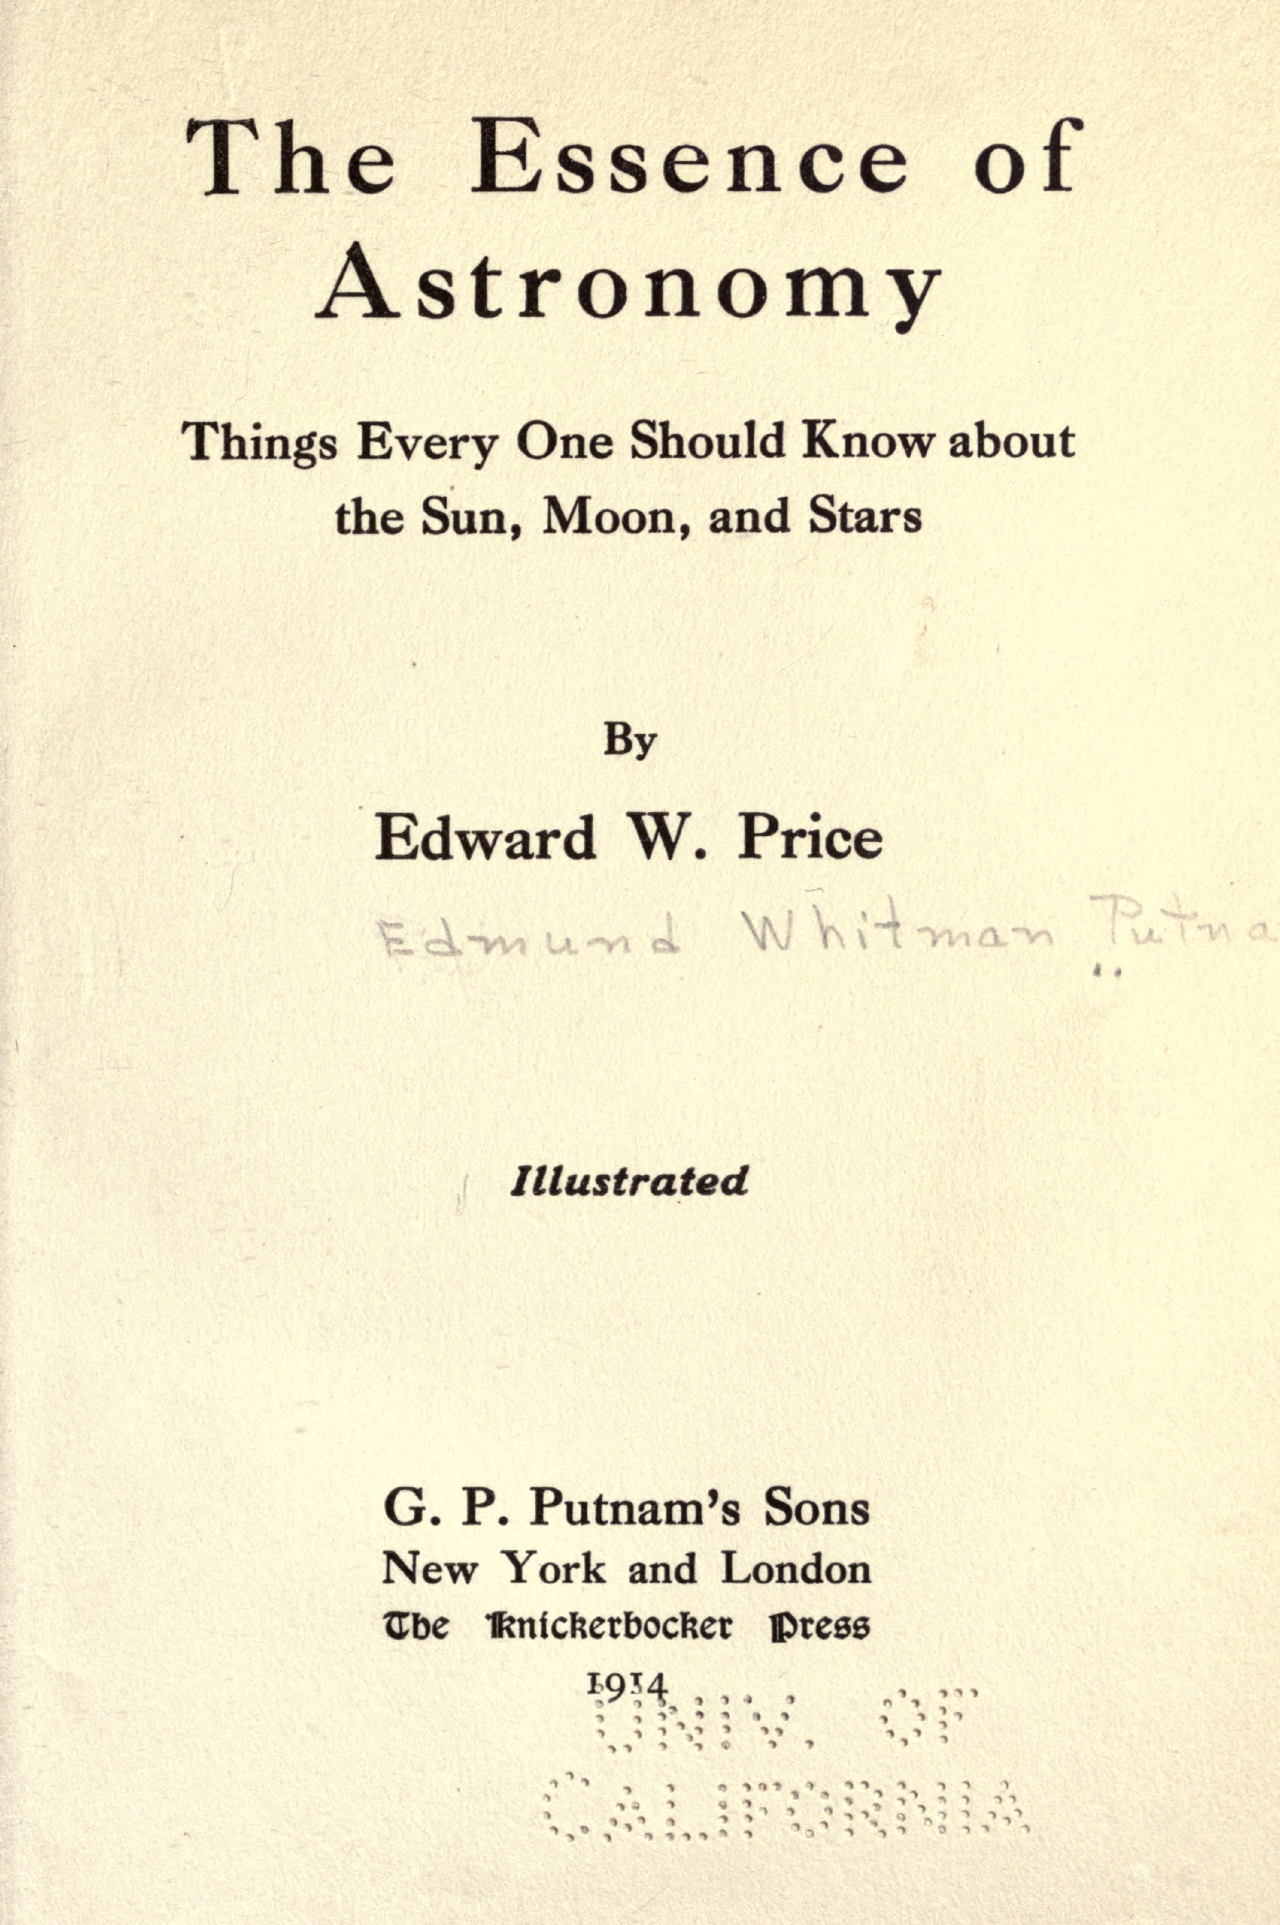 The Essence of
Astronomy
Things Every One Should Know about
the Sun, Moon, and Stars
By
Edward W. Price
Edmund Whitman Putna
Illustrated
G. P. Putnam's Sons
New York and London
The Knickerbocker Press
1914
UNIV. OF
CALIFORNIA